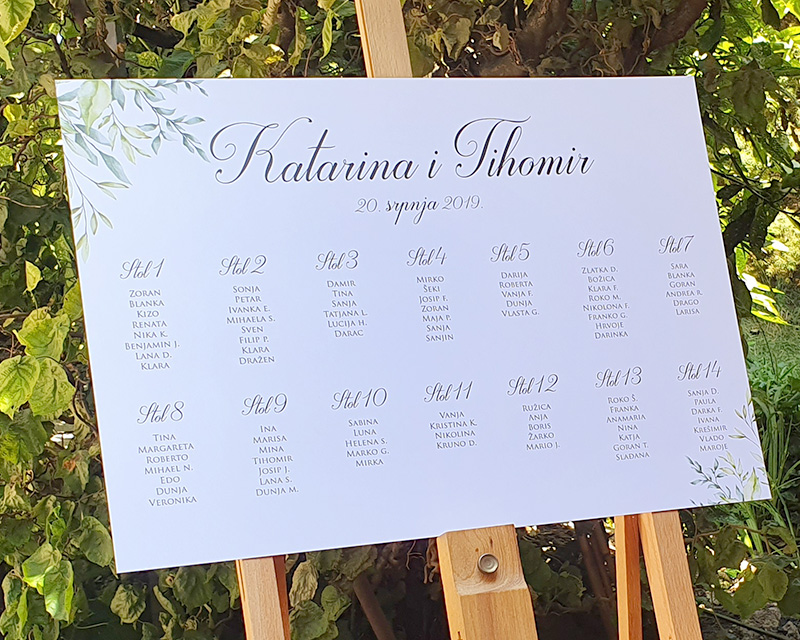 Katarina i Tihomir
20. srpnja 2019.
Stol 1
ZORAN
BLANKA
KIZO
RENATA
NIKA K.
BENJAMIN J.
LANA D.
KLARA
Stol 2
SONJA
PETAR
IVANKA E.
MIHAELA S.
SVEN
FILIP P.
KLARA
DRAŽEN
Stol 3
DAMIR
TINA
SANJA
TATJANA L.
LUCIJA H.
DARAC
Stol 4
MIRKO
ŠEKI
JOSIP F.
ZORAN
MAJA P.
SANJA
SANJIN
Stol 5
DARIJA
ROBERTA
VANJA F.
DUNJA
VLASTA G.
Stol 6
ZLATKA D.
BOŽICA
KLARA F.
ROKO M.
NIKOLONA F.
FRANKO G.
HRVOJE
DARINKA
Stol 7
SARA
BLANKA
GORAN
ANDREA R.
DRAGO
LARISA
Stol 8
TINA
MARGARETA
ROBERTO
MIHAEL N.
EDO
DUNJA
VERONIKA
Stol 9
INA
MARISA
MINA
TIHOMIR
JOSIP J.
LANA S.
DUNJA M.
Stol 10
SABINA
LUNA
HELENA S.
MARKO G.
MIRKA
Stol 11
VANJA
KRISTINA K.
NIKOLINA
KRUNO D.
Stol 12
RUŽICA
ANJA
BORIS
ŽARKO
MARIO J.
Stol 13
ROKO Š.
FRANKA
ANAMARIA
NINA
KATJA
GORAN T.
SLAĐANA
Stol 14
SANJA D.
PAULA
DARKA F.
IVANA
KREŠIMIR
VLADO
MAROJE